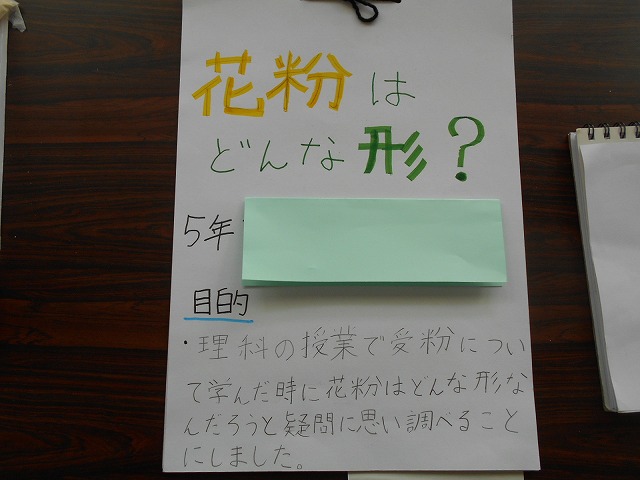 花粉は
どんな形?
5年
目的
・理科の授業で受粉につい
て学んだ時に花粉はどんな形な
んだろうと疑問に思い調べること
にしました。